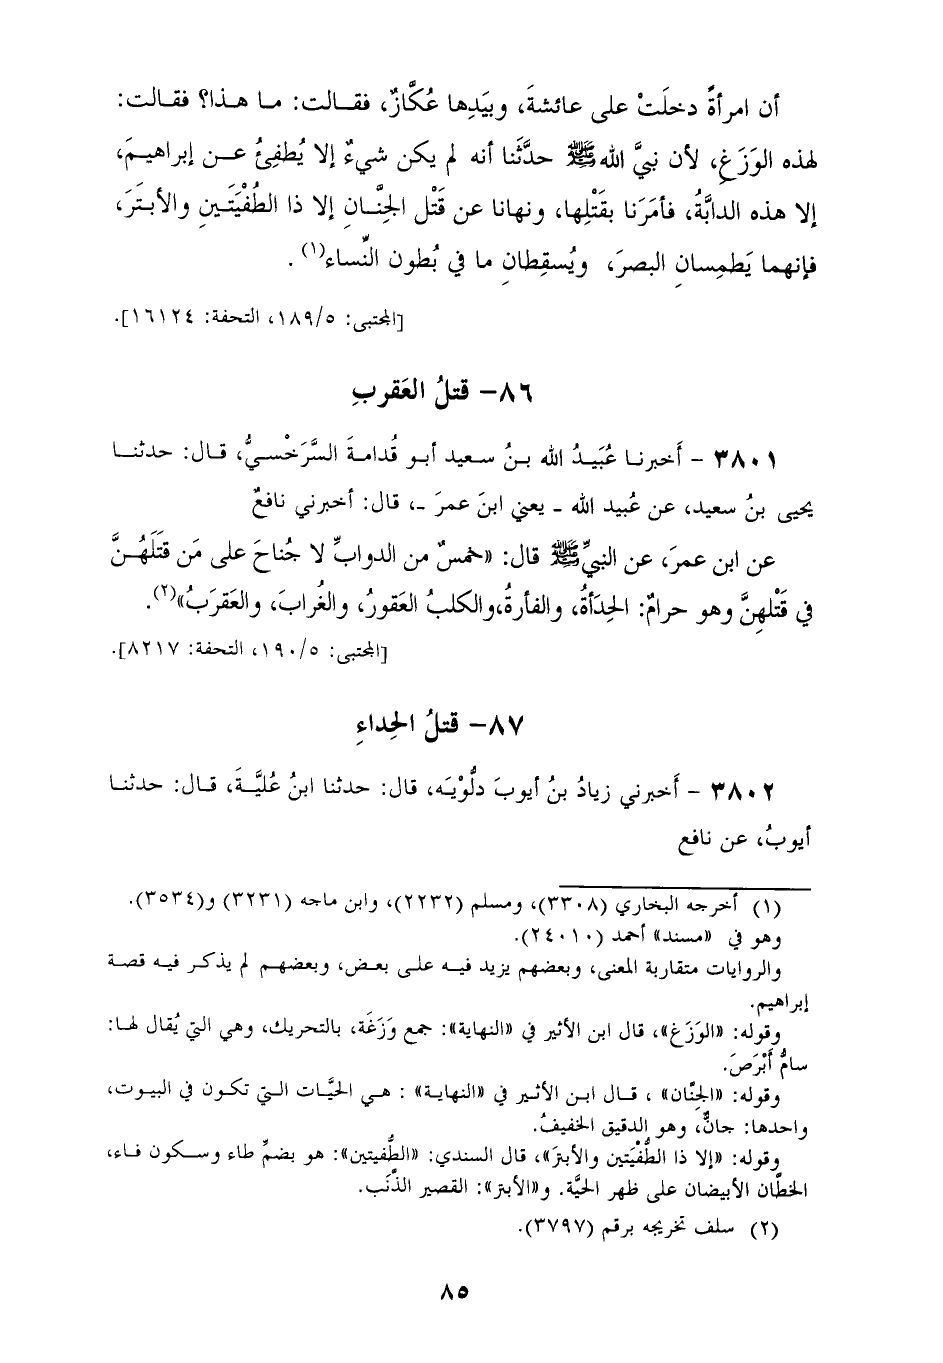 أن امرأةً دخلَتْ على عائشةَ، وبيَدِها عُكَّازٌ، فقـالت: مـا هـذا؟ فقالت:
لهذه الوَزَغِ، لأن نبيَّ اللهﷺ حدَّثَنا أنه لم يكن شيءٌ إلا يُطفِئُ عـن إبراهيـمَ،
إلا هذه الدابَّةُ، فأمَرَنا بقَتْلِها، ونهانا عن قَتْل الجِنَّـانِ إلا ذا الطُفْيَتَـينِ والأبـتَرَ،
فإنهما يَطمِسانِ البصرَ، ويُسقِطانِ ما في بُطون النِّساء(١) .
[المجتبى: ١٨٩/٥، التحفة: ١٦١٢٤].
٨٦- قتلُ العَقربِ
٣٨٠١ - أَخبرنـا عُبَيـدُ الله بـنُ سـعيد أبـو قُدامـةَ السَّرَخْسيُّ، قـال: حدثنـا
يحيى بنُ سعيد، عن عُبيد الله - يعني ابنَ عمرَ -، قال: أخبرني نافعٌ
عن ابن عمرَ، عن النبيِّﷺ قال: «خمسٌ من الدوابِّ لا جُناحَ على مَن قتَلَهُـنَّ
في قَتْلهِنَّ وهو حرامٌ: الحِدَأةُ، والفأرةُ،والكلبُ العَقورُ، والغُرابَ، والعَقرَبُ»(٢).
[المجتبى: ١٩٠/٥، التحفة: ٨٢١٧].
٨٧- قتلُ الحِداءِ
٣٨٠٢ - أَخبرني زيادُ بنُ أيوبَ دلُّوْيَـه، قال: حدثنا ابنُ عُليَّـةَ، قـال: حدثنـا
أيوبُ، عن نافع
(١) أخرجه البخاري (٣٣٠٨)، ومسلم (٢٢٣٢)، وابن ماجه (٣٢٣١) و(٣٥٣٤).
وهو في «مسند» أحمد (٢٤٠١٠).
والروايات متقاربة المعنى، وبعضهم يزيد فيـه علـى بعـض، وبعضهـم لم يذكـر فيـه قصـة
إبراهيم.
وقوله: «الوَزَغ»، قال ابن الأثير في «النهاية»: جمع وَزَغَة، بالتحريك، وهي التي يُقال لهـا:
سامُّ أَبْرَصَ.
وقوله: «الجِنّان» ، قـال ابـن الأثـير في «النهايـة» : هـي الحيَّـات الـتي تكـون في البيـوت،
واحدها: جانٌّ، وهو الدقيق الخفيفُ.
وقوله: «إلا ذا الطُّفْيَتين والأبترَ»، قال السندي: «الطُّفيتين»: هو بضمِّ طاء وسـكون فـاء،
الخطَّان الأبيضان على ظهر الحيَّة. و«الأبتر»: القصير الذَّنَب.
(٢) سلف تخريجه برقم (٣٧٩٧).
٨٥